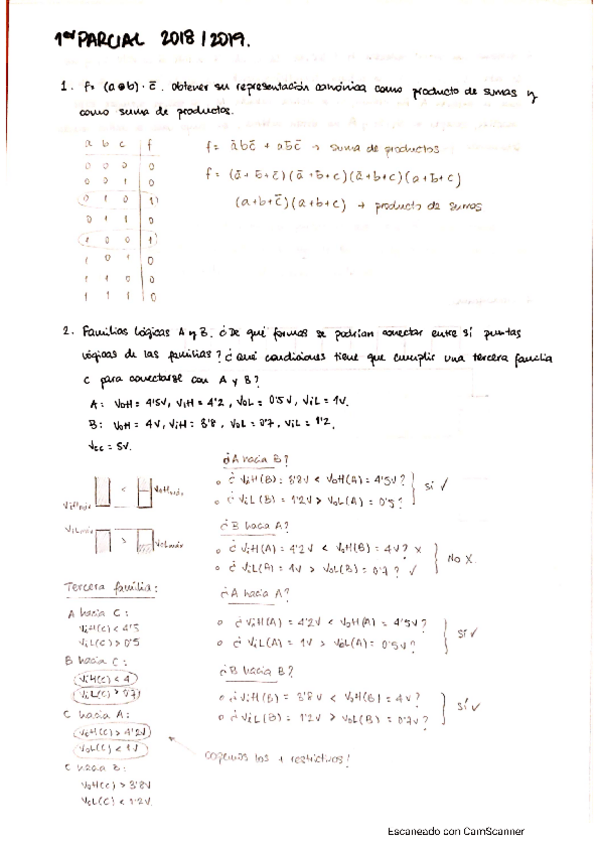 1er PARCIAL 2018/2019.
1. f= (a⊕b)·c̄. obtener su representación canónica como producto de sumas y
como suma de productos.
a b c f
0 0 0 0
0 0 1 0
0 1 0 1)
0 1 1 0
1 0 0 1)
1 0 1 0
1 1 0 0
1 1 1 0
f= ābc̄ + ab̄c̄ → suma de productos
f= (ā+b̄+c̄)(ā+b̄+c)(ā+b+c̄)(a+b̄+c̄)
(a+b+c̄)(a+b+c) → producto de sumas
2. Familias lógicas A y B. ¿De qué formas se podrían conectar entre sí puertas
lógicas de las familias? ¿Qué condiciones tiene que cumplir una tercera familia
C para conectarse con A y B?
A: VOH = 4'5V, ViH = 4'2, VOL = 0'5V, ViL = 1V.
B: VOH = 4V, ViH = 3'8, VOL = 0'7, ViL = 1'2.
Vcc = 5V.
ViHmín < VOHmín
ViLmáx > VOLmáx
¿A hacia B?
¿ViH(B): 3'8V < VOH(A) = 4'5V?
¿ViL(B) = 1'2V > VOL(A) = 0'5?
Sí ✓
¿B hacia A?
¿ViH(A) = 4'2V < VOH(B) = 4V? X
¿ViL(A) = 1V > VOL(B) = 0'7? ✓
No X.
¿A hacia A?
¿ViH(A) = 4'2V < VOH(A) = 4'5V?
¿ViL(A) = 1V > VOL(A) = 0'5V?
Sí ✓
¿B hacia B?
¿ViH(B) = 3'8V < VOH(B) = 4V?
¿ViL(B) = 1'2V > VOL(B) = 0'7V?
Sí ✓
Tercera familia:
A hacia C:
ViH(C) < 4'5
ViL(C) > 0'5
B hacia C:
ViH(C) < 4
ViL(C) > 0'7
C hacia A:
VOH(C) > 4'2V
VOL(C) < 1V
C hacia B:
VOH(C) > 3'8V
VOL(C) < 1'2V.
cogemos los + restrictivos!
Escaneado con CamScanner